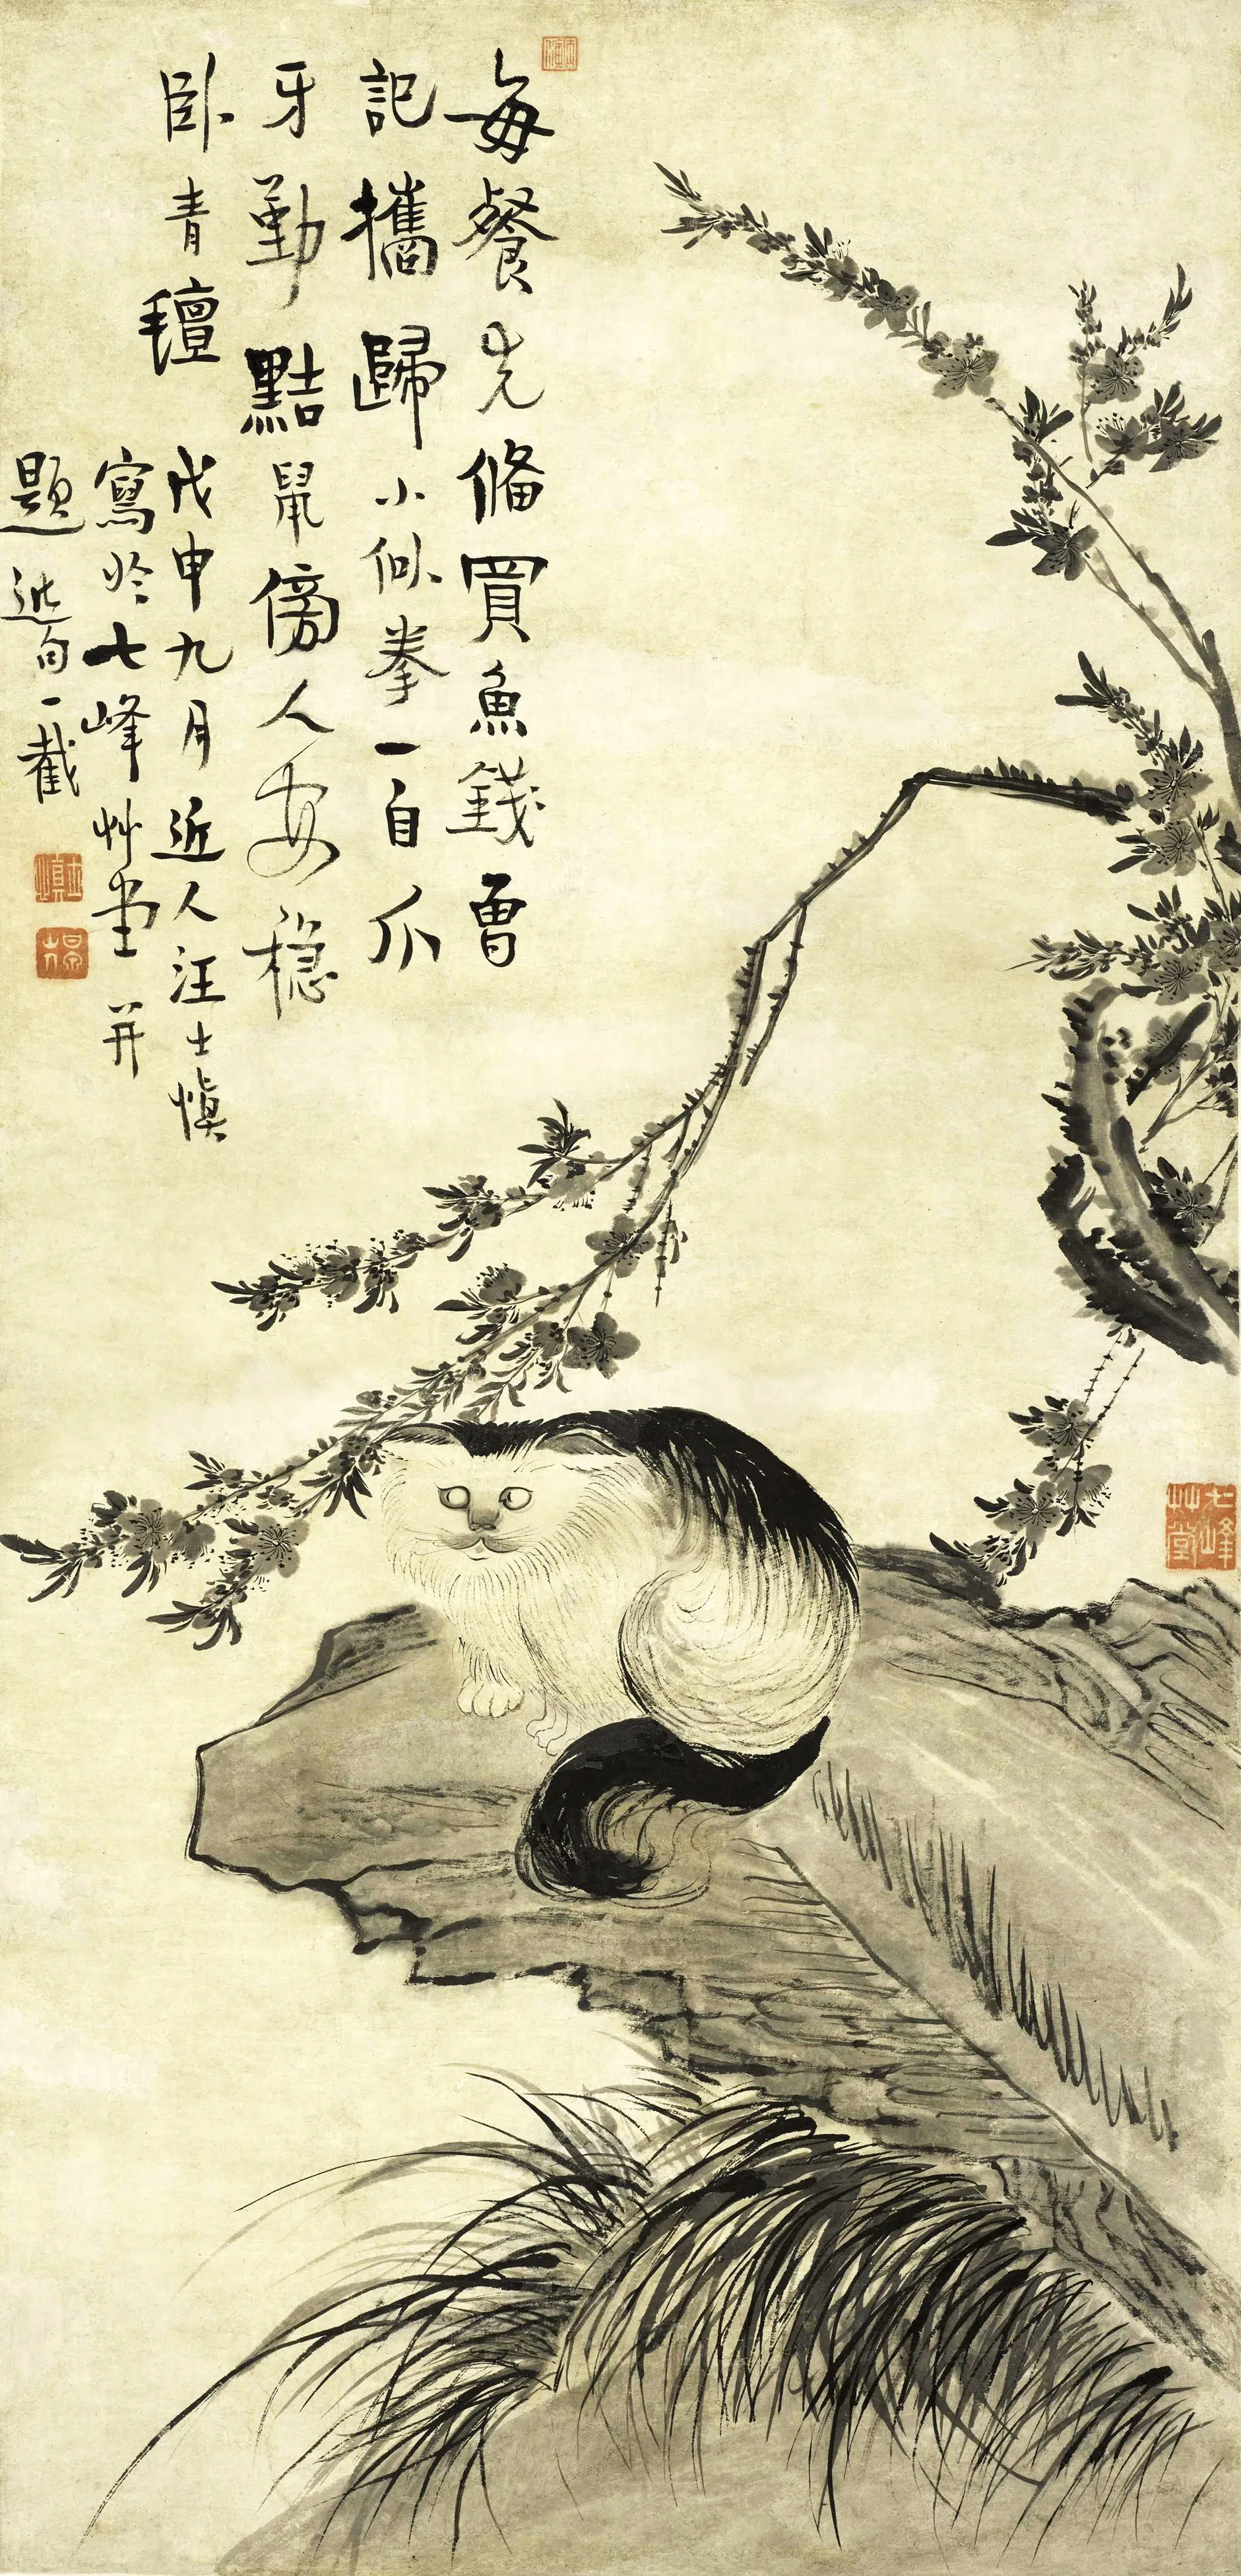 每餐先備買魚錢曾
記攜歸小似拳一自爪
牙勤黠鼠傍人安穩
臥青氊
戊申九月近人汪士慎
寫於七峰艸堂并
題斷句一截
七峰艸堂